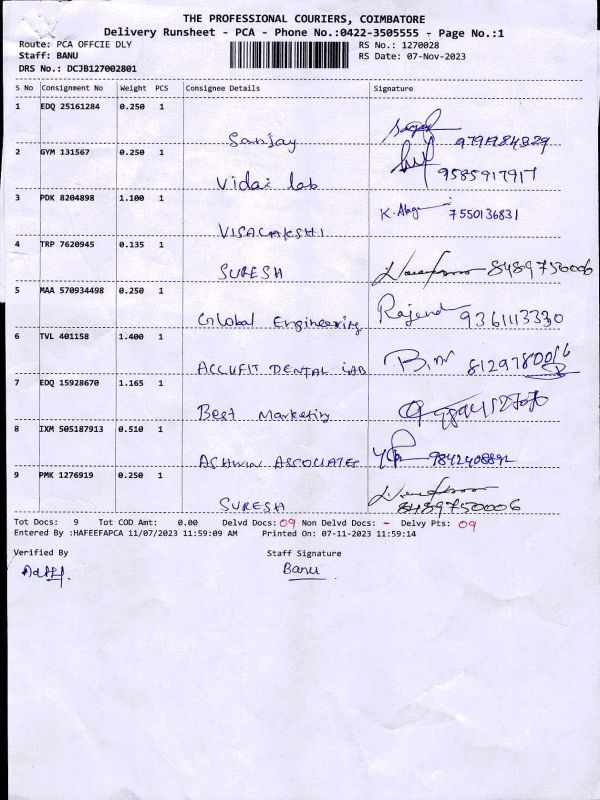 THE PROFESSIONAL COURIERS, COIMBATORE
Delivery Runsheet - PCA - Phone No.:0422-3505555 - Page No.:1
Route: PCA OFFCIE DLY RS No.: 1270028
Staff: BANU RS Date: 07-Nov-2023
DRS No.: DCJB127002801
S No Consignment No Weight PCS Consignee Details Signature
1 EDQ 25161284 0.250 1
Sanjay
2 GYM 131567 0.250 1
Vidai lab 9585917917
3 PDK 8204898 1.100 1
VISALAKSHI 7550136831
4 TRP 7620945 0.135 1
SURESH 8489750006
5 MAA 570934498 0.250 1
Global Engineering Rajend 9361113330
6 TVL 401158 1.400 1
ACCUFIT DENTAL LAB
7 EDQ 15928670 1.165 1
Best Marketing
8 IXM 505187913 0.510 1
ASHWIN ASSOCIATES
9 PMK 1276919 0.250 1
SURESH 8489750006
Tot Docs: 9 Tot COD Amt: 0.00 Delvd Docs: 09 Non Delvd Docs: - Delvy Pts: 09
Entered By :HAFEEFAPCA 11/07/2023 11:59:09 AM Printed On: 07-11-2023 11:59:14
Verified By Staff Signature
Banu